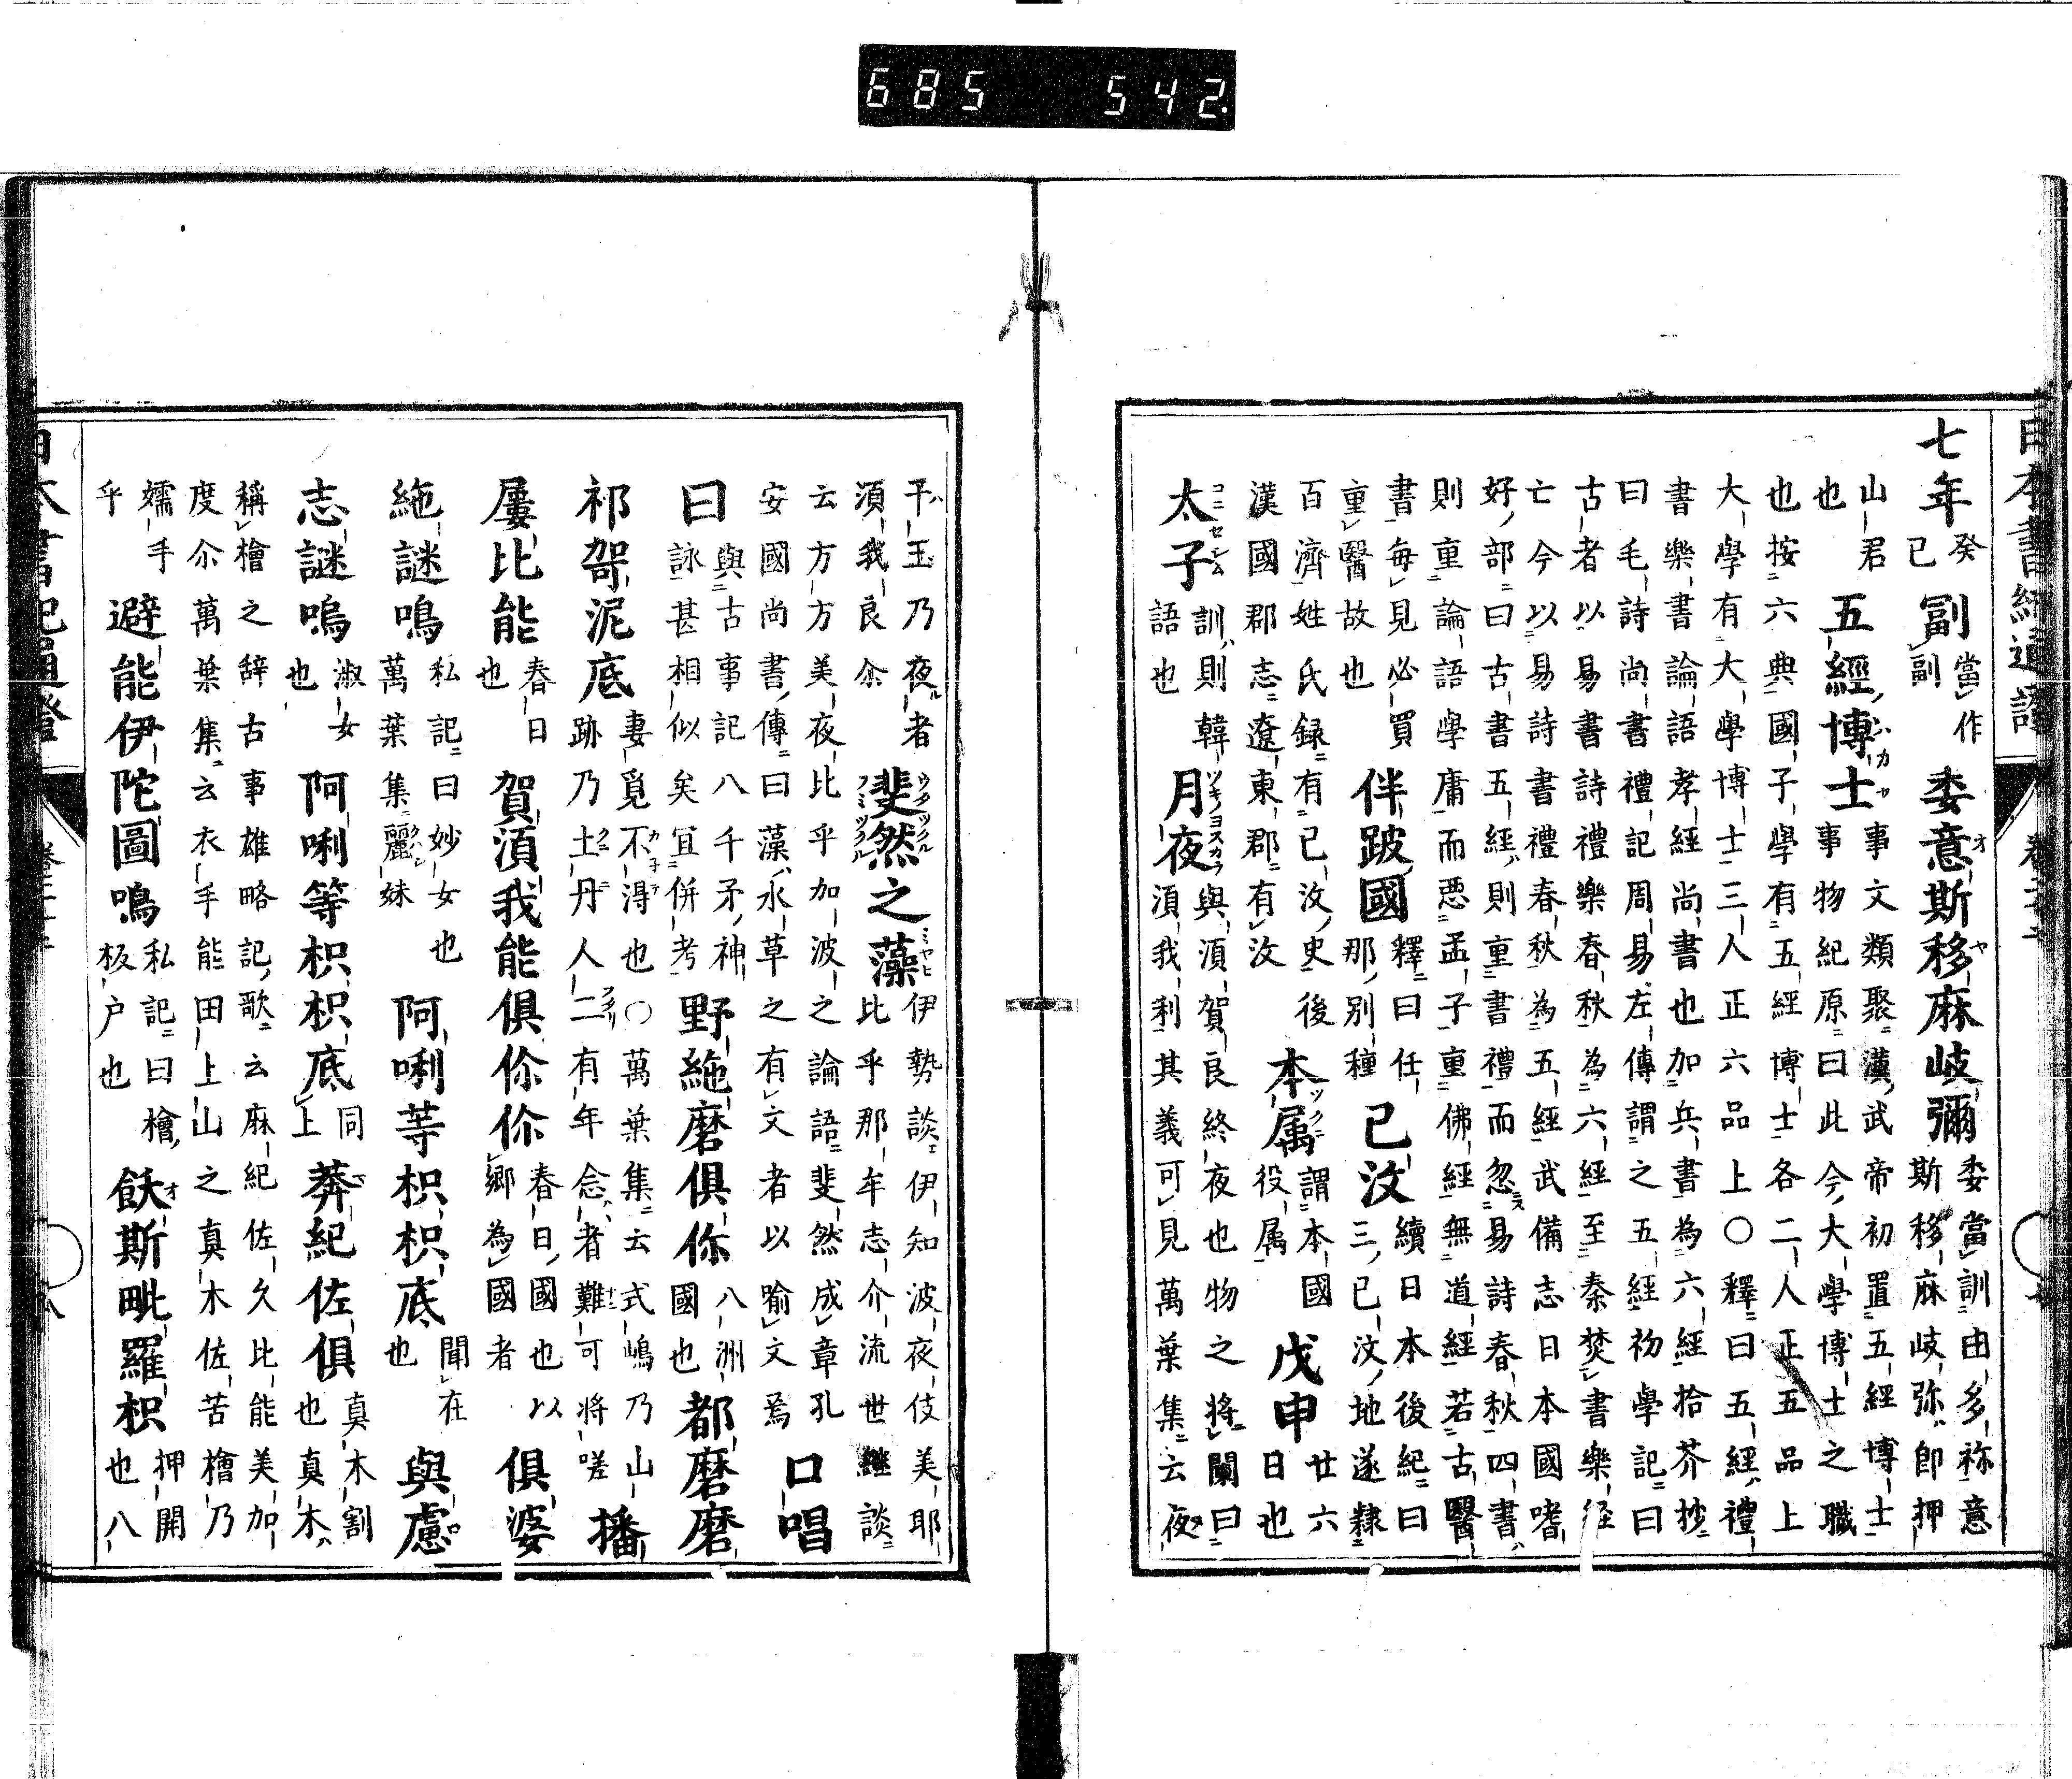 685 542
七年癸已副當作副委意斯移麻岐彌委當訓由多祢意斯移麻岐弥即押
山君也五經博士事文類聚漢武帝初置五經博士事物紀原曰此今大學博士之職
也按六典國子學有五經博士各二人正五品上
大學有大學博士三人正六品上〇釋曰五經禮
書樂書論語孝經尚書也加兵書為六經拾芥抄
曰毛詩尚書禮記周易左傳謂之五經初學記曰
古者以易書詩禮樂春秋為六經至秦焚書樂經
亡今以易詩書禮春秋為五經武備志日本國嗜
好部曰古書五經則重書禮而忽易詩春秋四書
則重論語學庸而惡孟子重佛經無道經若古醫
書每見必買重醫故也伴跛國釋曰任那別種已汶續日本後紀曰三已汶地遂隸
百濟姓氏録有已汶史後漢國郡志遼東郡有汶本属謂本國役属戊申廿六日也
太子訓則韓語也月夜與須賀良終夜也物之將闌曰須我利其義可見萬葉集云夜
干玉乃夜者須我良尒斐然之藻伊勢談伊知波夜伎美耶比乎那牟志介流世継談
云方方美夜比乎加波之論語斐然成章孔安國尚書傳曰藻水草之有文者以喻文焉口唱
曰與古事記八千矛神詠甚相似矣宜併考野絁磨俱你八洲國也都磨磨
祁哿泥底妻覓不得也〇萬葉集云式嶋乃山跡乃土丹人二有年念者難可将嗟播
屢比能春日也賀須我能俱你你春日國也以鄉為國者俱婆
絁謎鳴私記曰妙女也萬葉集麗妹阿唎等枳枳底聞在也與慮
志謎嗚淑女也阿唎等枳枳底同上莾紀佐俱真木割也真木
稱檜之辞古事雄略記歌云麻紀佐久比能美加度尒萬葉集云衣手能田上山之真木佐苦檜乃
嬬手乎避能伊陀圖鳴私記曰檜板户也飫斯毗羅枳押開也八